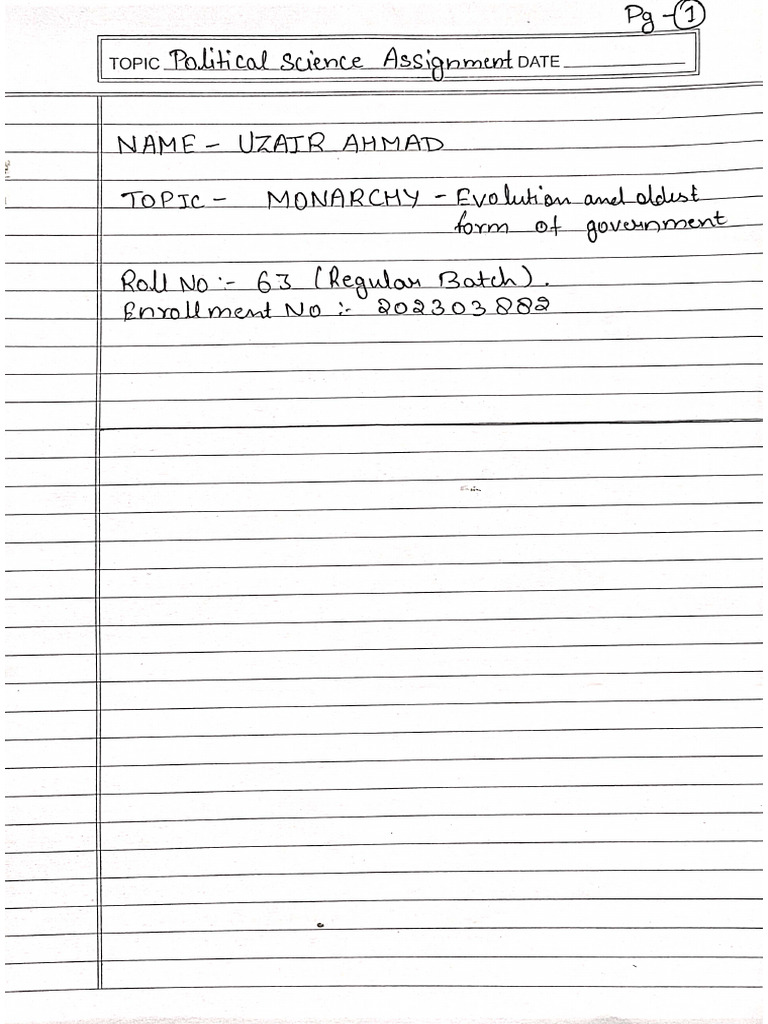 Pg - 1
TOPIC Political Science Assignment DATE
NAME - UZAIR AHMAD
TOPIC - MONARCHY - Evolution and oldest
form of government
Roll No :- 63 (Regular Batch).
Enrollment No :- 202303882